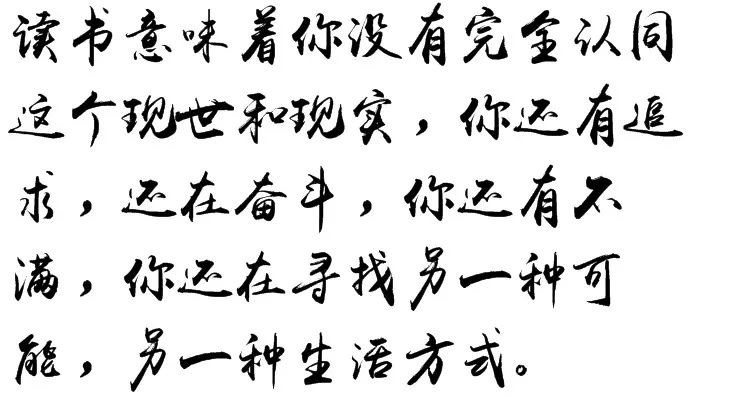 读书意味着你没有完全认同
这个现世和现实，你还有追
求，还在奋斗，你还有不
满，你还在寻找另一种可
能，另一种生活方式。